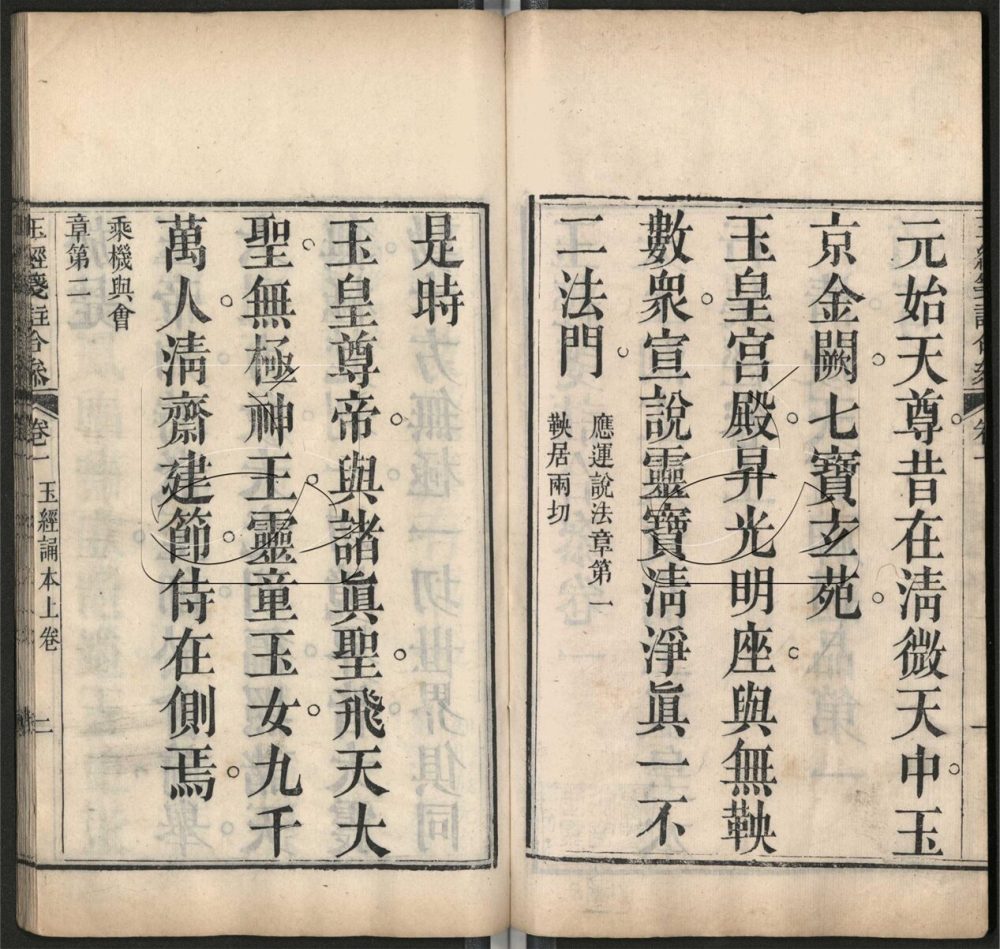 元始天尊昔在淸微天中玉
京金闕七寶玄苑
玉皇宮殿昇光明座與無鞅
數衆宣說靈寶淸淨眞一不
二法門
應運說法章第一
鞅居兩切
是時
玉皇尊帝與諸眞聖飛天大
聖無極神王靈童玉女九千
萬人淸齋建節侍在側焉
乘機與會
章第二
玉經箋註合參
卷一
玉經誦本上卷
二